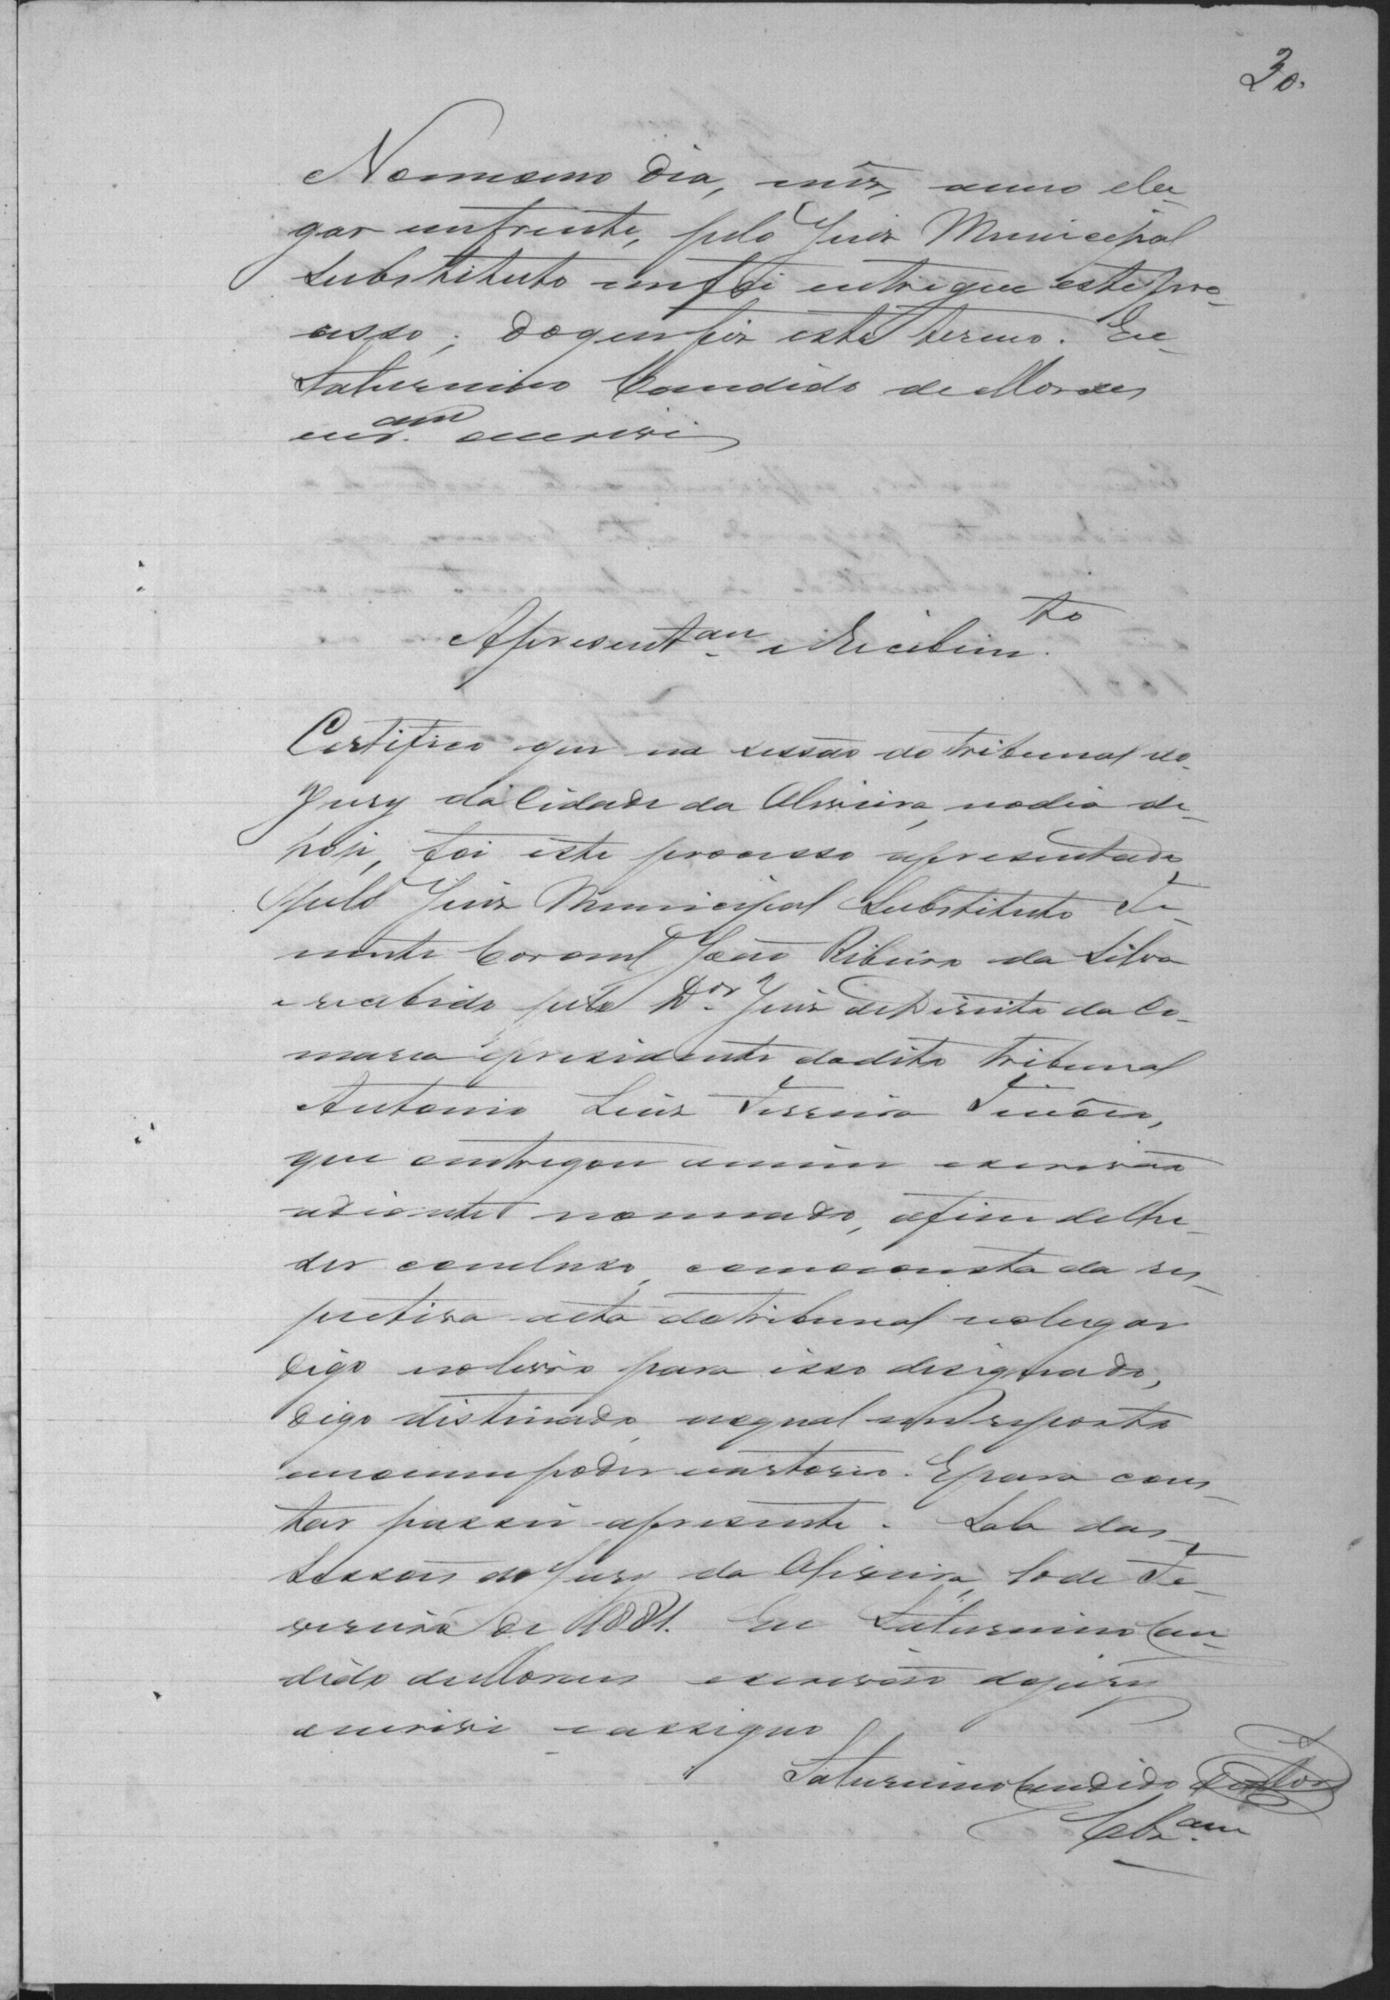 30.
No mesmo dia, mês, anno e lu-
gar em frente, pelo Juiz Municipal
Substituto me foi entregue este pro-
cesso; do que fiz este termo. Eu
Saturnino Candido de Moraes
escr.am escrivi
Apresent.am e Recebim.to
Certifico que na sessão do tribunal do
Jury da Cidade da Oliveira, no dia de
hoje, foi este processo apresentado
pelo Juiz Municipal Substituto Te-
nente Coronel João Ribeiro da Silva
e recebido pelo D.or Juiz de Direito da Co-
marca e presidente do dito tribunal
Antonio Luiz Ferreira Tinôco,
que entregou a mim escrivão
adiante nomeado, afim de lhe
ser concluso, como consta da res-
pectiva acta do tribunal no lugar
digo no livro para isso designado,
digo distinado, a qual me reporto
em meu poder e cartorio. E para cons-
tar passei a presente. Sala das
Sessões do Jury da Oliveira, 10 de Fe-
vereiro de 1881. Eu Saturnino Can-
dido de Moraes escrivão do jury
escrivi e assigno
Saturnino Candido de Mor